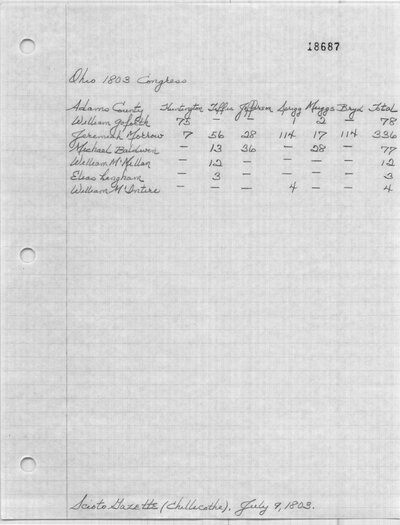 18687
Ohio 1803 Congress
Adams County Huntington Tiffin Jefferson Sprigg Meiggs Bryd Total
William Goforth 75 - - 1 2 - 78
Jeremiah Morrow 7 56 28 114 17 114 336
Michael Baldwin - 13 36 - 28 - 77
William McMillan - 12 - - - - 12
Elias Langham - 3 - - - - 3
William McIntire - - - 4 - - 4
Scioto Gazette (Chillicothe), July 9, 1803.